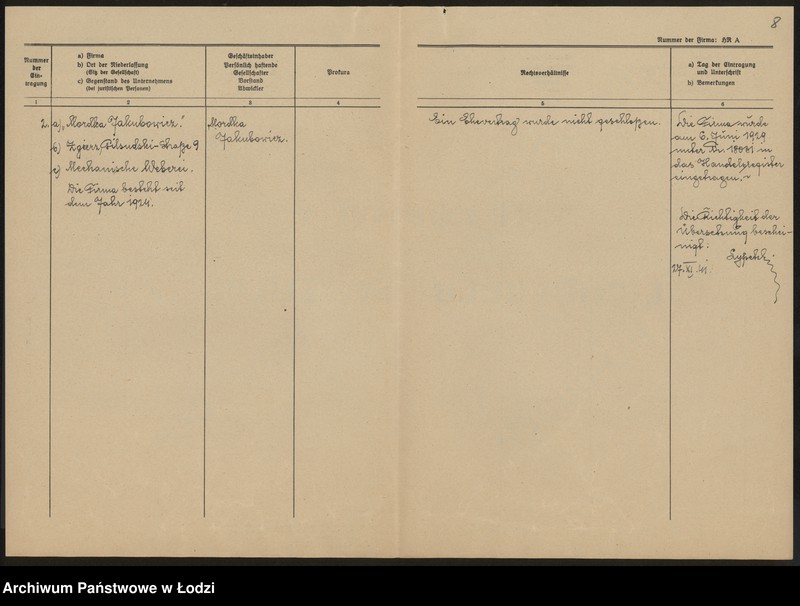 8
Nummer der Firma: HR A
Nummer
der
Ein-
tragung
a) Firma
b) Ort der Niederlassung
(Sitz der Gesellschaft)
c) Gegenstand des Unternehmens
(bei juristischen Personen)
Geschäftsinhaber
Persönlich haftende
Gesellschafter
Vorstand
Abwickler
Prokura
Rechtsverhältnisse
a) Tag der Eintragung
und Unterschrift
b) Bemerkungen
1
2
3
4
5
6
2.
a) „Mordka Jakubowicz."
b) Zgierz, Pilsudski-Straße 9
c) Mechanische Weberei.
Die Firma besteht seit
dem Jahr 1924.
Mordka
Jakubowicz.
Ein Ehevertrag wurde nicht geschloßen.
Die Firma wurde
am 6. Juni 1929
unter Nr. 18081 in
das Handelsregister
eingetragen."
Die Richtigkeit der
Übersetzung beschei-
nigt:
27. XI. 41.
Archiwum Państwowe w Łodzi